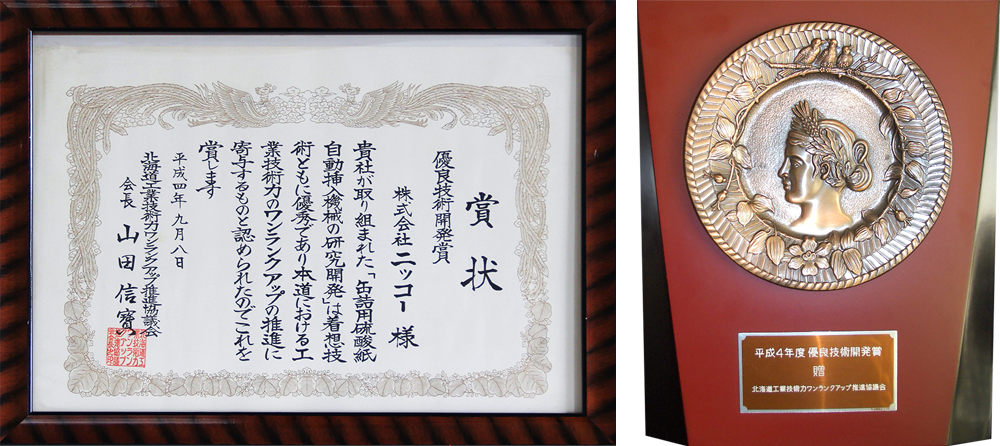 賞状
優良技術開発賞
株式会社ニッコー 様
貴社が取り組まれた「缶詰用硫酸紙
自動挿入機械の研究開発」は着想技
術ともに優秀であり本道における工
業技術力のワンランクアップの推進に
寄与するものと認められたのでこれを
賞します
平成四年九月八日
北海道工業技術力ワンランクアップ推進協議会
会長 山田信寳
平成4年度 優良技術開発賞
贈
北海道工業技術力ワンランクアップ推進協議会